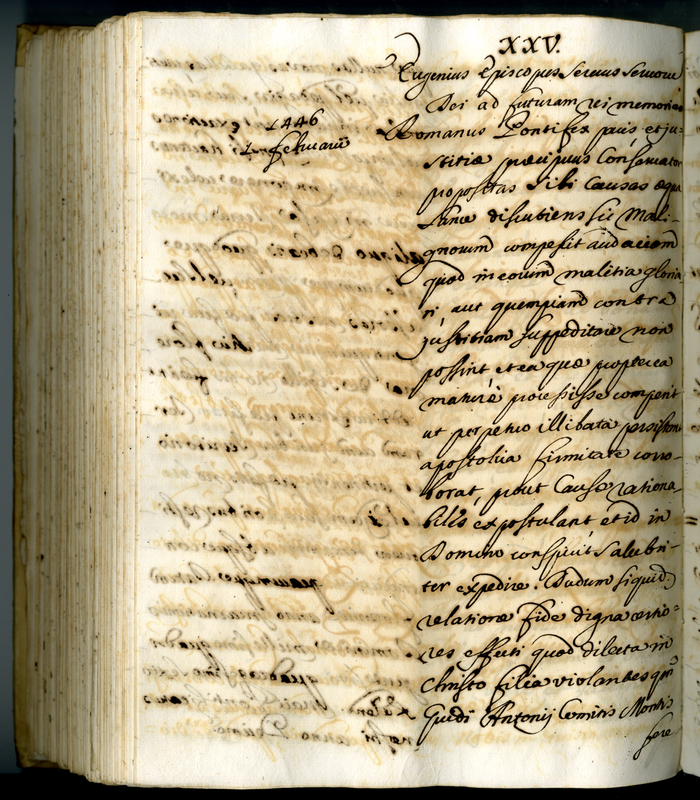 XXV.
Eugenius Episcopus Servus Servorum
Dei ad futuram rei memoriam
1446
1 februarii
Romanus Pontifex pacis et ju-
stitiæ præcipuus Conservator
propositas sibi Causas æqua
Lance discutiens sic Mali-
gnorum compescit audaciam
quod in eorum malitia gloria-
ri aut quempiam contra
justitiam suppeditare non
possint et ea quæ propterea
maturè processisse comperit
ut perpetuo illibata persistant
apostolica firmitate corro-
borat, prout Causæ rationa-
biles expostulant et id in
Domino conspicit salubri-
ter expedire. Dudum siquidem
relatione fide digna certio-
res effecti quod dilecta in
Christo filia violantes qm
Guidi Antonij Comitis Montis
fere